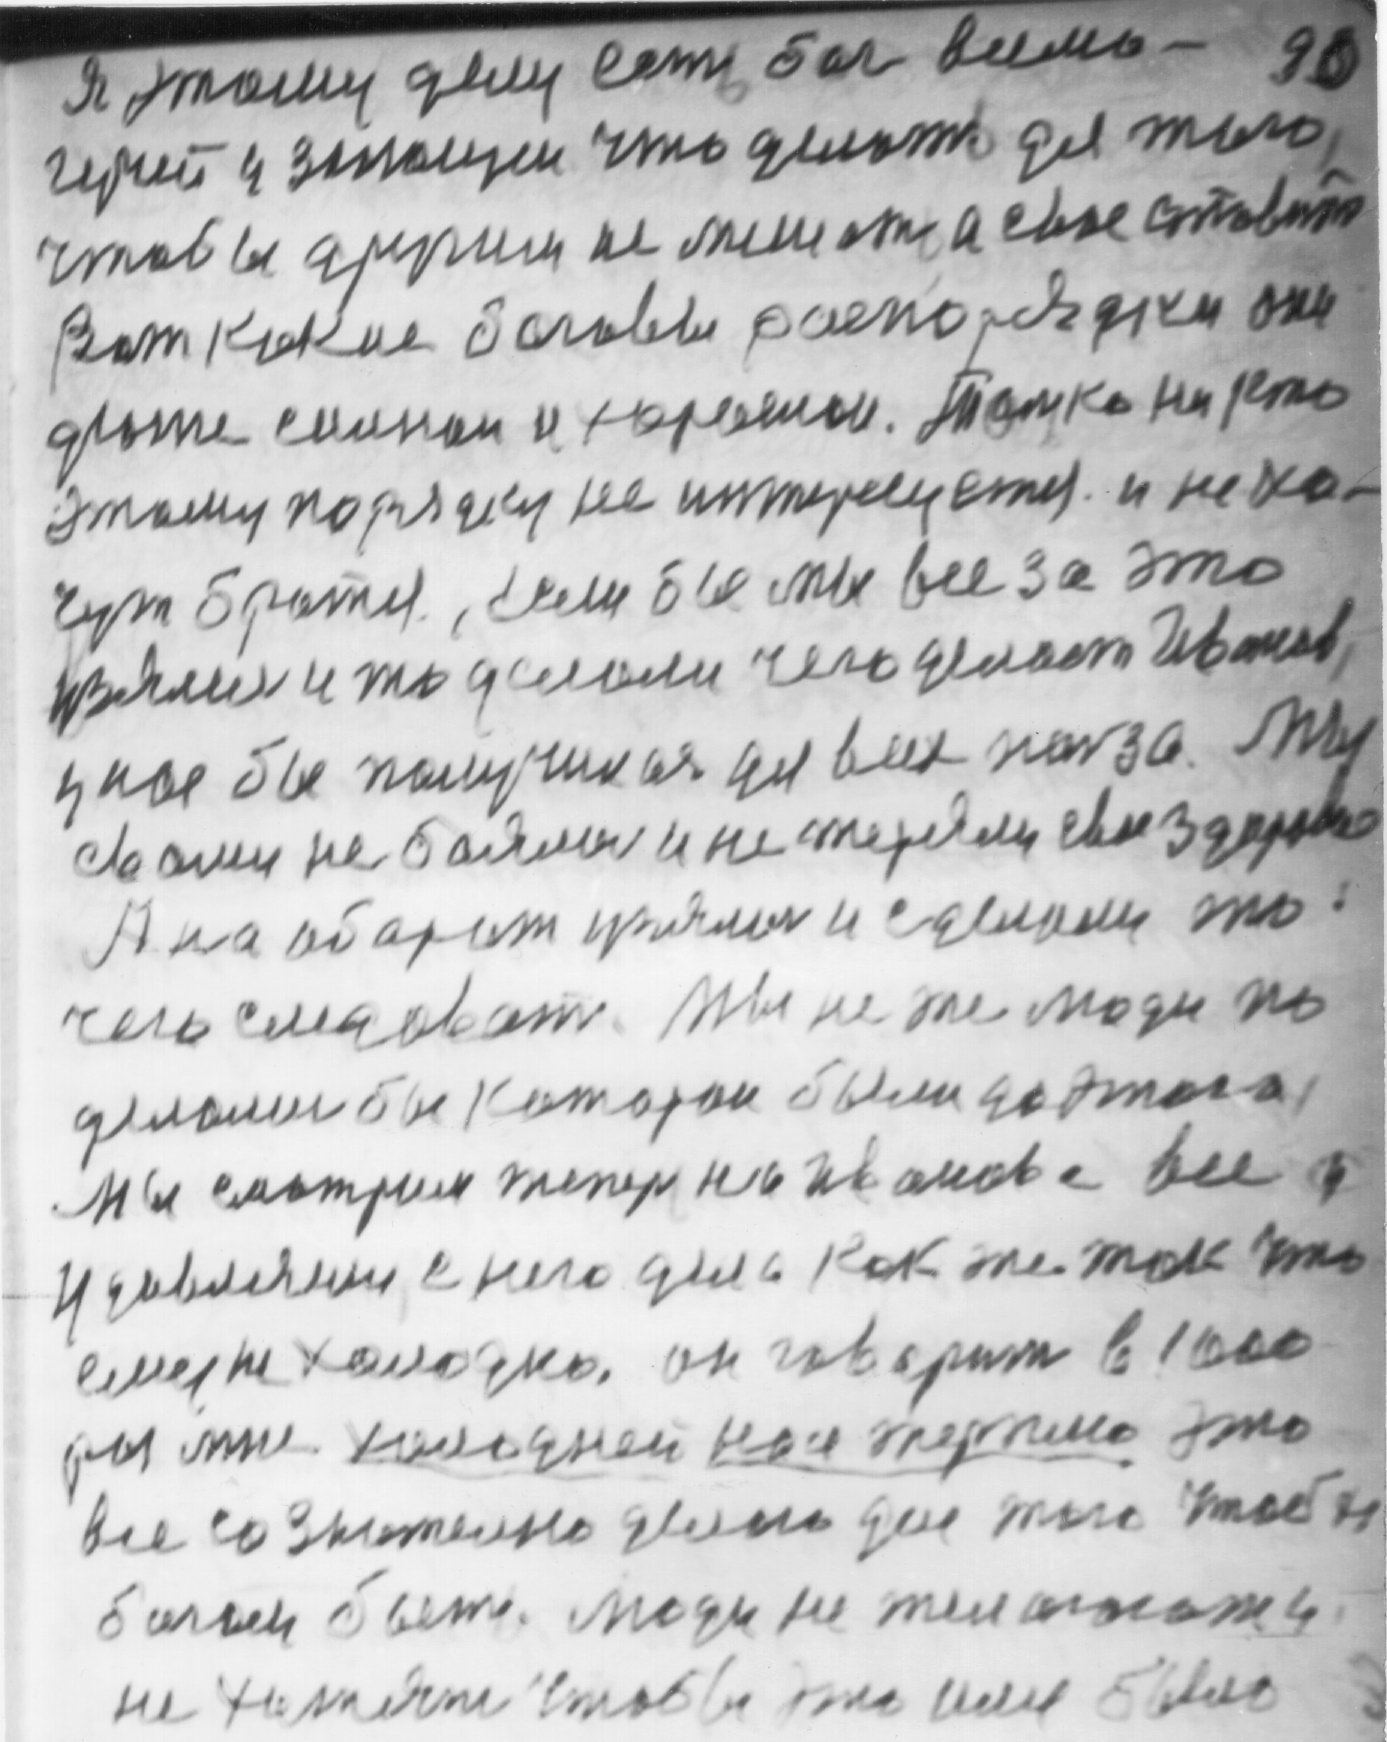 Я этому делу есть бог всемо- 90
гучий и знающи что делать для того,
чтобы другим не мешать а свое ставить
Вот какие боговы распорядки они
даже силнои и хорошои. Только ни кто
этому порядку не интересуется. и не хо-
чут братся., Если бы мы все за это
узялися и то делали чего делает Иванов,
у нас бы получилася для всех польза. Мы
с вами не боялися и не теряли свое здоровие
А на обарот узялися и сделали то:
чего следовать. Мы не те люди по
делалися бы каторои были до этого,
Мы смотрим теперь на Иванова все и
удовляем с него дела как же так что
ему не холодно. он говорит в 1000
раз мне холодней но я терпимо это
все сознателно делаю для того чтобы
богом быть. Люди не желають и
не хотять чтобы это ими было